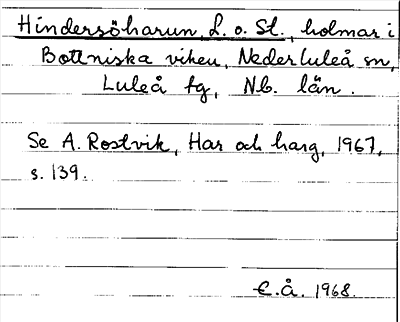 Hindersöharun, L. o. St., holmar i
Bottniska viken, Nederluleå sn,
Luleå tg, Nb. län.
Se A. Rostvik, Har och harg, 1967,
s. 139.
E.Å. 1968.